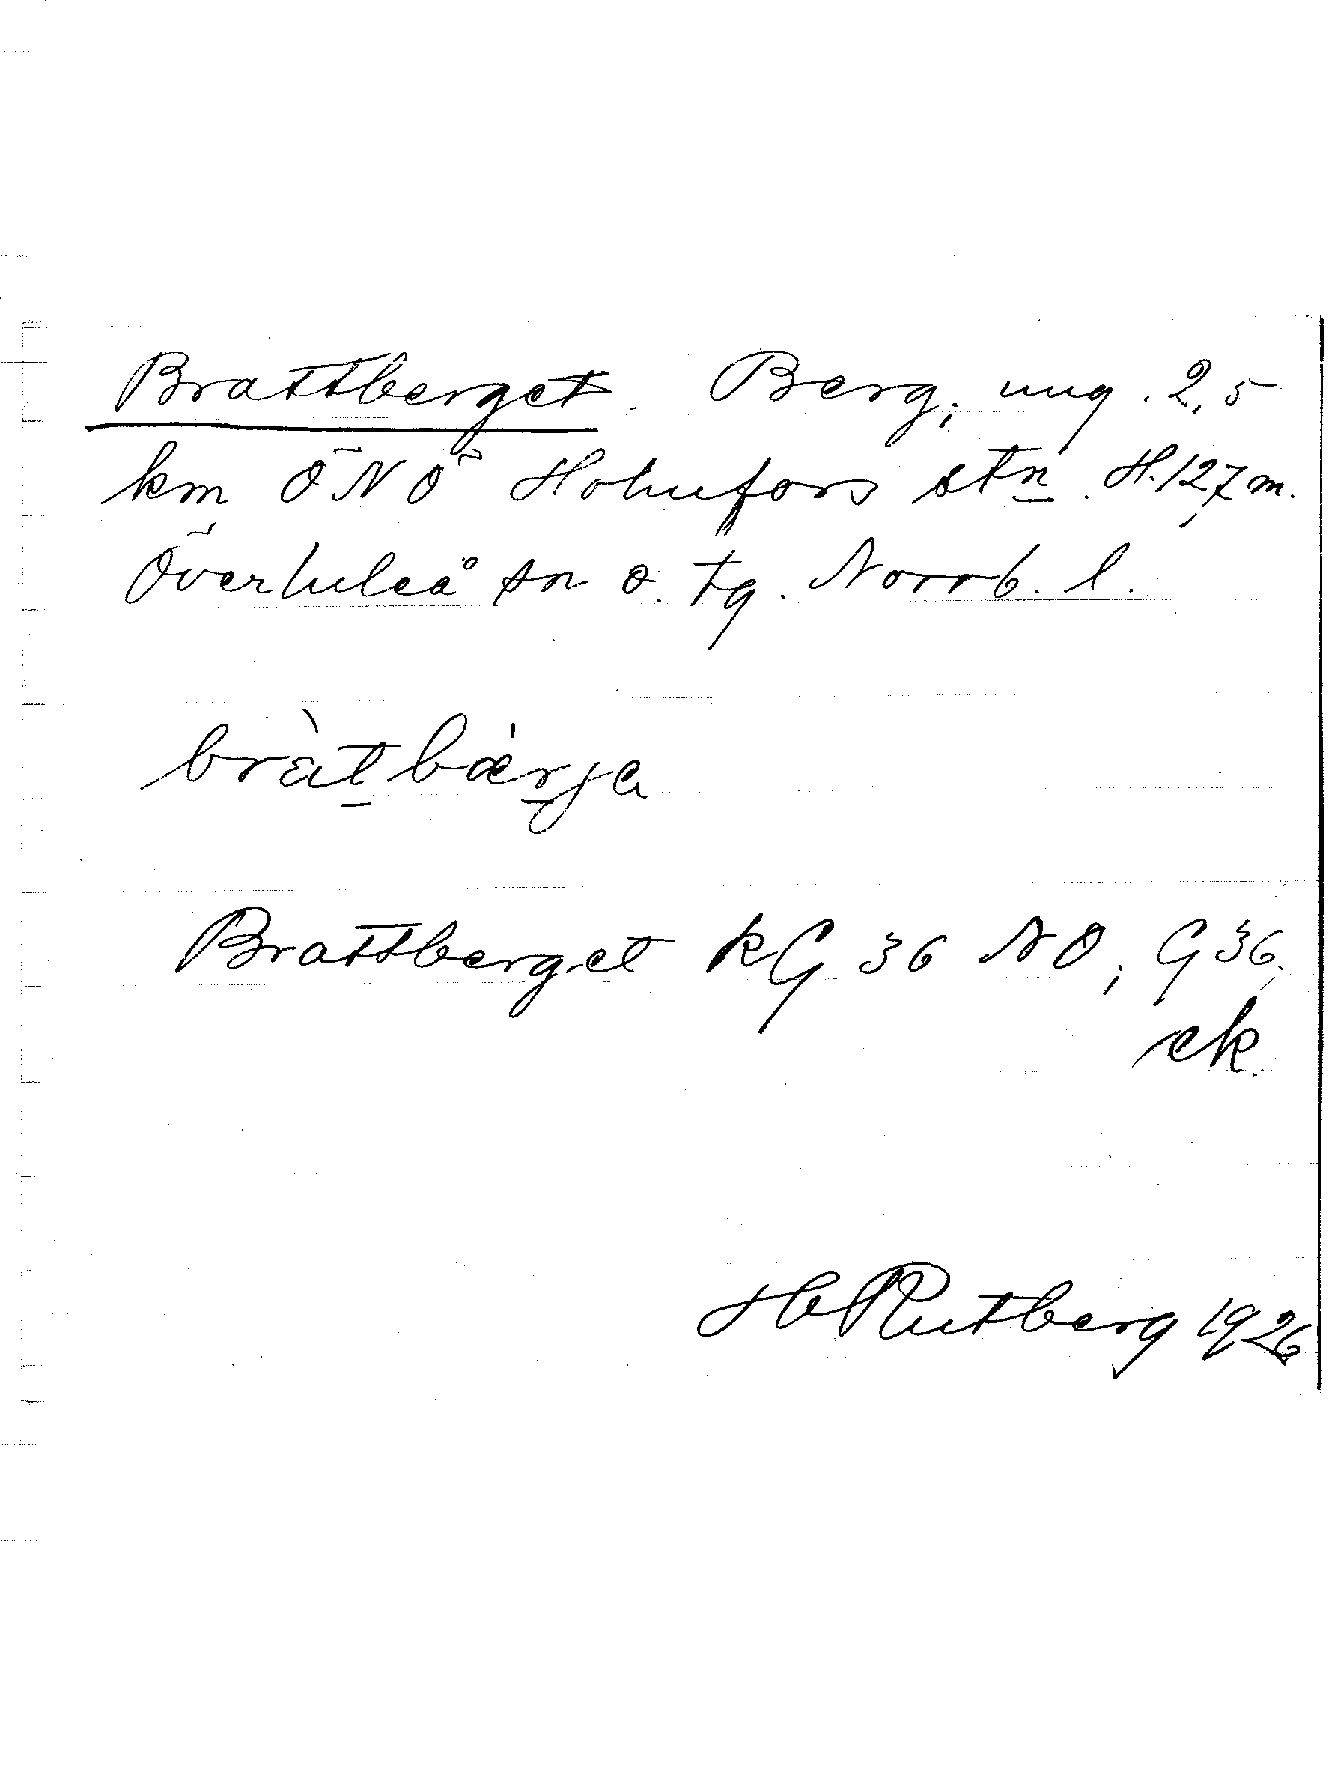 Brattberget. Berg, ung. 2,5
km ÖNÖ Holmfors stn. H. 127 m.
Överluleå sn o. tg. Norrb. l.
bràt bǽrja
Brattberget kG 36 NO, G 36,
ek.
H Rutberg 1926